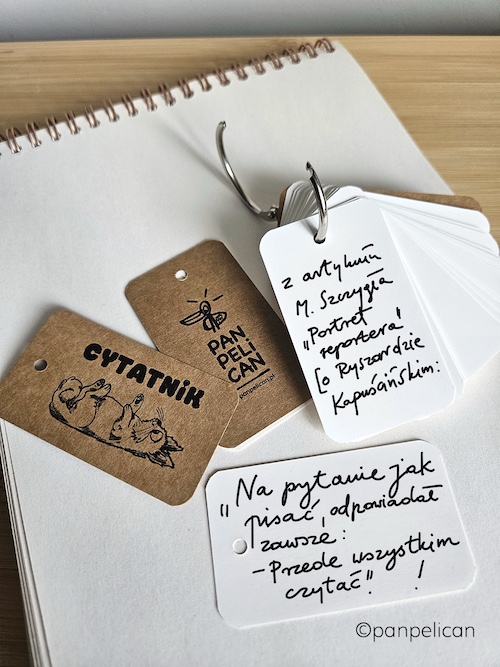 CYTATNIK
PAN
PELI
CAN
panpelican.pl
z artykułu
M. Szczygła
„Portret
reportera"
[o Ryszardzie
Kapuścińskim:
„Na pytanie jak
pisać, odpowiadał
zawsze:
- Przede wszystkim
czytać". !
©panpelican